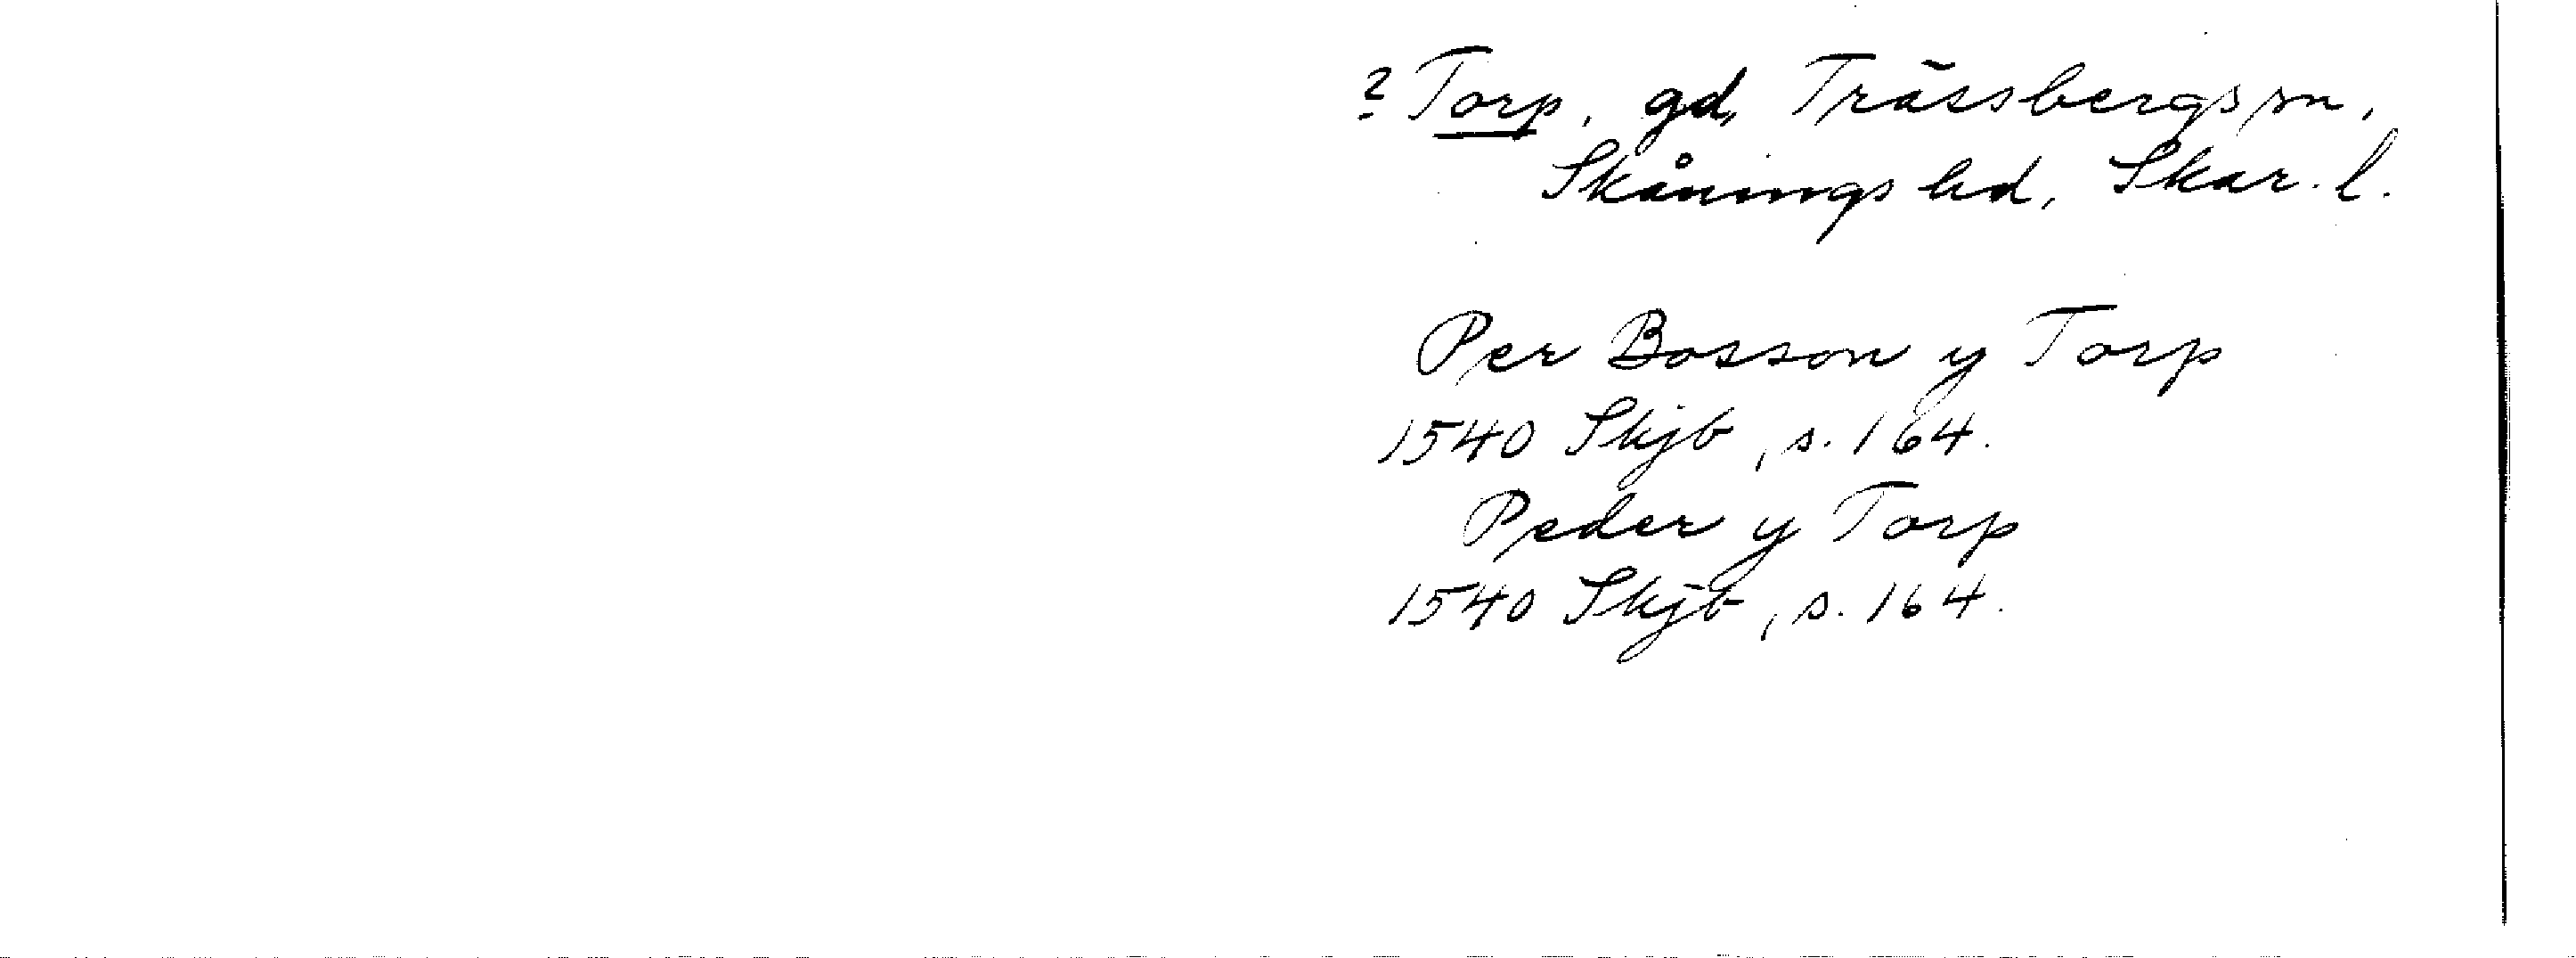 ? Torp, gd, Trässbergs sn,
Skånings hd, Skar. l.
Per Bosson y Torp
1540 Skjb, s. 164.
Peder y Torp
1540 Skjb, s. 164.